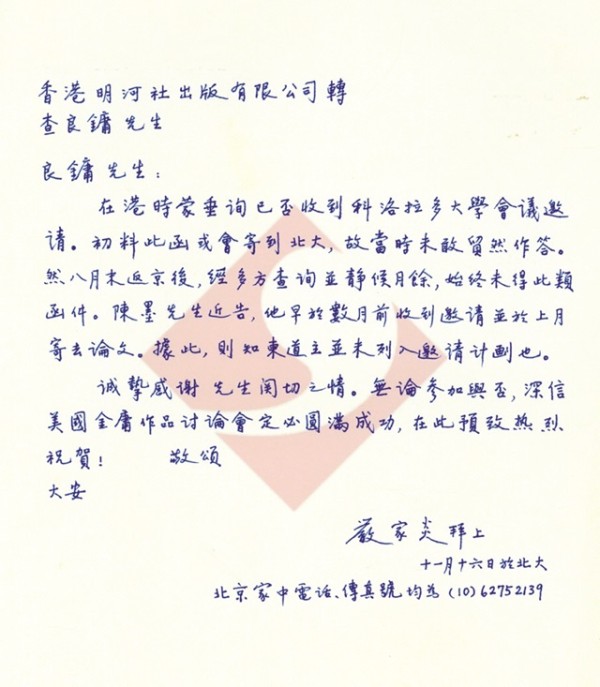 香港明河社出版有限公司轉
查良鏞先生
良鏞先生：
在港時蒙垂询已否收到科洛拉多大學會议邀
請。初料此函或會寄到北大，故當時未敢貿然作答。
然八月末返京後，經多方查询並静候月餘，始终未得此類
函件。陳墨先生近告，他早於數月前收到邀請並於上月
寄去论文。據此，則知東道主並未列入邀请计劃也。
诚摯感谢 先生関切之情。無論参加與否，深信
美國金庸作品讨論會定必圆滿成功，在此預致热烈
祝賀！ 敬頌
大安
嚴家炎拜上
十一月十六日於北大
北京家中電话、傳真號均為（10）62752139